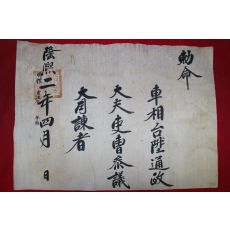 勅命
車相台陞通政
大夫吏曹參議
大司諫者
隆熙二年四月 日